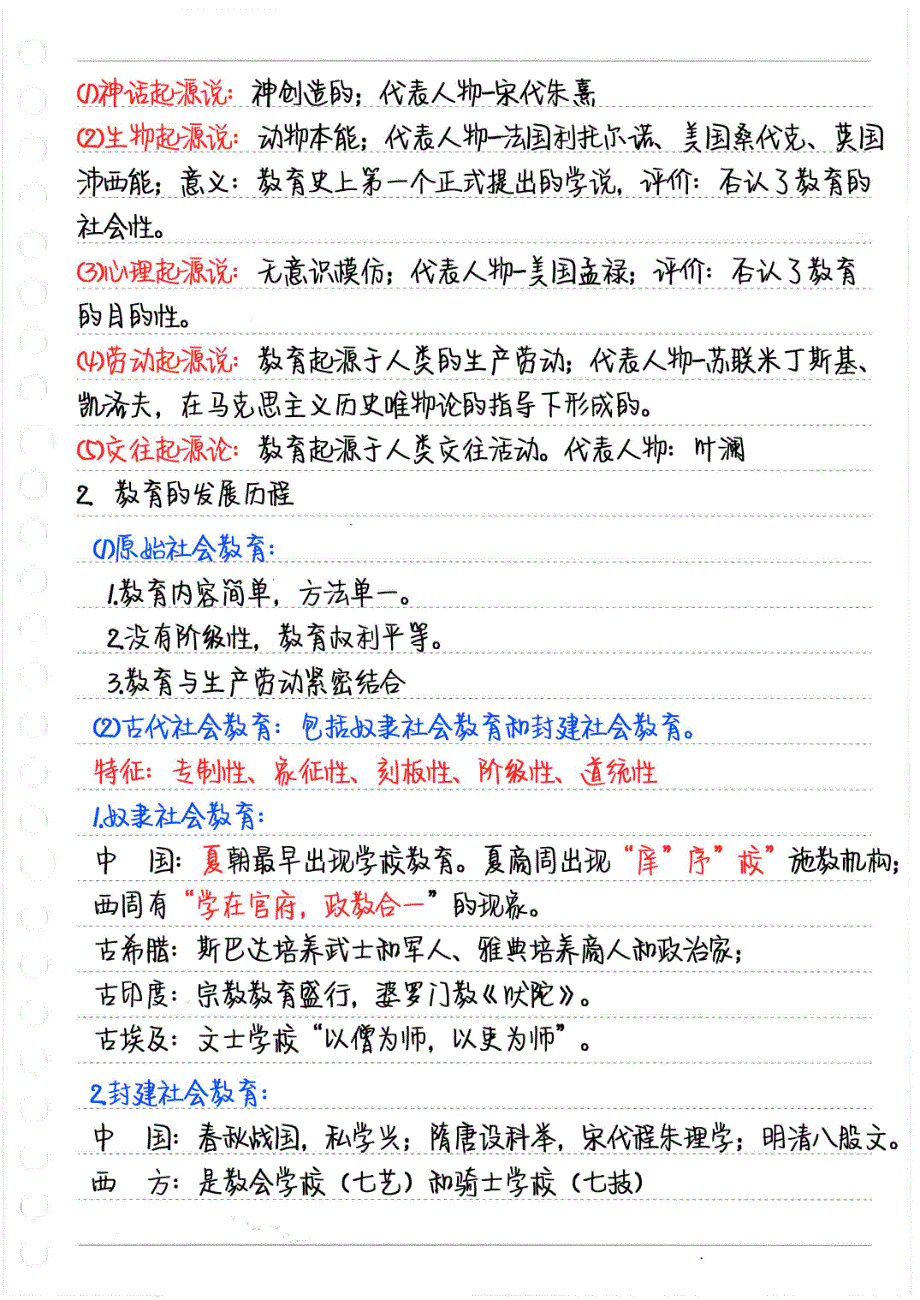 (1)神话起源说：神创造的；代表人物-宋代朱熹
(2)生物起源说：动物本能；代表人物-法国利托尔诺、美国桑代克、英国
沛西能；意义：教育史上第一个正式提出的学说，评价：否认了教育的
社会性。
(3)心理起源说：无意识模仿；代表人物-美国孟禄；评价：否认了教育
的目的性。
(4)劳动起源说：教育起源于人类的生产劳动；代表人物-苏联米丁斯基、
凯洛夫，在马克思主义历史唯物论的指导下形成的。
(5)交往起源论：教育起源于人类交往活动。代表人物：叶澜
2. 教育的发展历程
(1)原始社会教育：
1.教育内容简单，方法单一。
2.没有阶级性，教育权利平等。
3.教育与生产劳动紧密结合
(2)古代社会教育：包括奴隶社会教育和封建社会教育。
特征：专制性、象征性、刻板性、阶级性、道统性
1.奴隶社会教育：
中　国：夏朝最早出现学校教育。夏商周出现“庠”序”校”施教机构；
西周有“学在官府，政教合一”的现象。
古希腊：斯巴达培养武士和军人、雅典培养商人和政治家；
古印度：宗教教育盛行，婆罗门教《吠陀》。
古埃及：文士学校“以僧为师，以吏为师”。
2.封建社会教育：
中　国：春秋战国，私学兴；隋唐设科举，宋代程朱理学；明清八股文。
西　方：是教会学校（七艺）和骑士学校（七技）